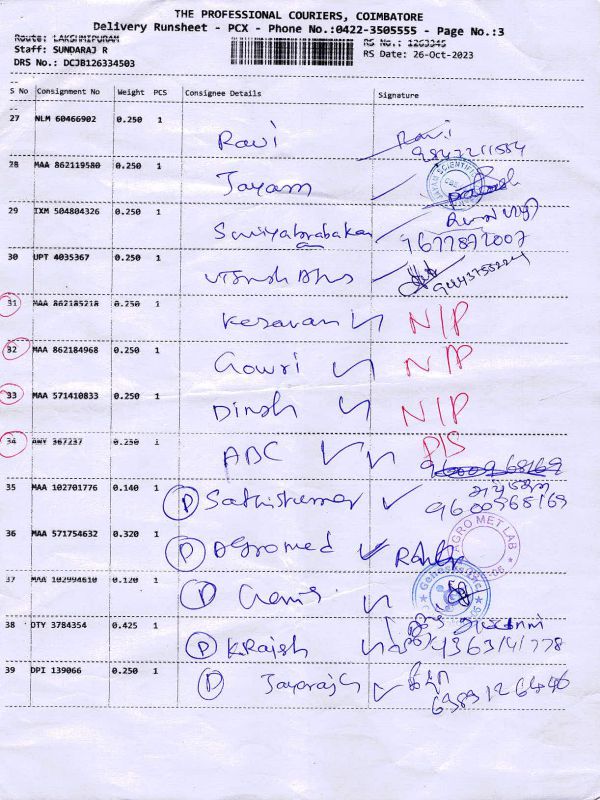 THE PROFESSIONAL COURIERS, COIMBATORE
Delivery Runsheet - PCX - Phone No.:0422-3505555 - Page No.:3
Route: LAKSHMIPURAM
RS No.: 1263345
Staff: SUNDARAJ R
RS Date: 26-Oct-2023
DRS No.: DCJB126334503
S No Consignment No Weight PCS Consignee Details Signature
27 NLM 60466902 0.250 1 Ravi Ravi
28 MAA 862119580 0.250 1 Jayam
29 IXM 504804326 0.250 1 Suriyabrabakar
9677872007
30 UPT 4035367 0.250 1
31 MAA 862185218 0.250 1 Kesavan N/P
32 MAA 862184968 0.250 1 Gowri N/P
33 MAA 571410833 0.250 1 Dinesh N/P
34 AWY 367237 0.250 1 ABC P/S
35 MAA 102701776 0.140 1 P Sathishkumar
9600768169
36 MAA 571754632 0.320 1 P Agromed
AGRO MET LAB
37 MAA 102994610 0.120 1 P
38 DTY 3784354 0.425 1 P K.Rajesh
39 DPI 139066 0.250 1 P Jayaraj